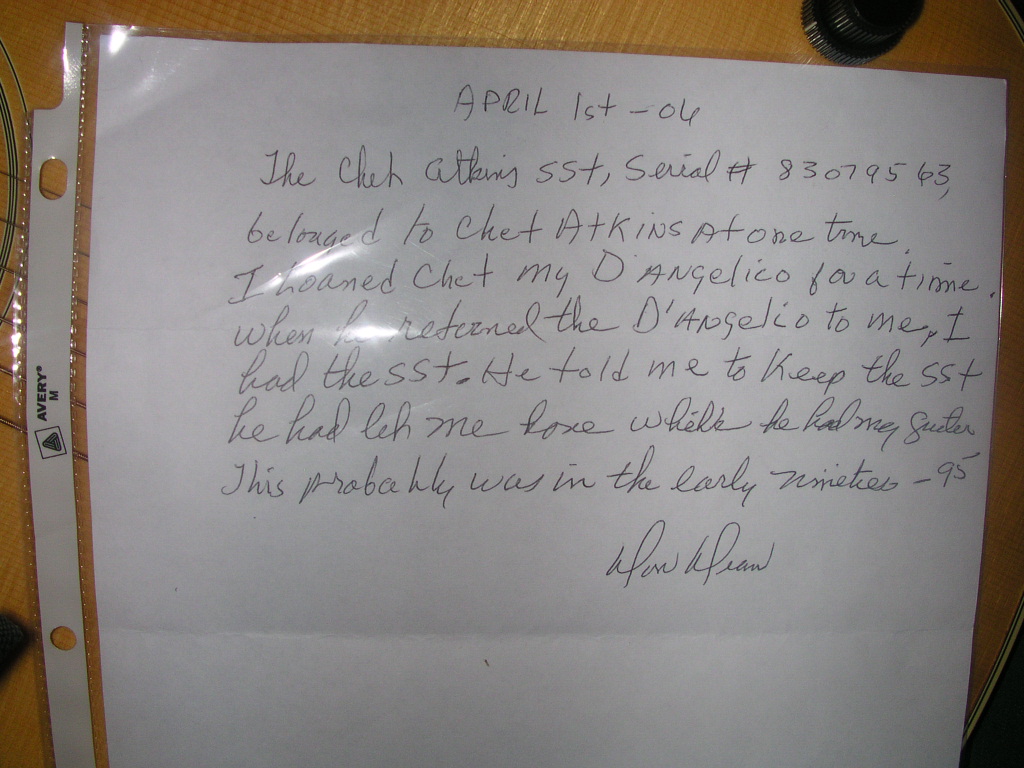 APRIL 1st - 06
The Chet Atkins SST, Serial # 83079563,
belonged to Chet ATKINS At one time.
I Loaned Chet my D'ANGELICO for a time.
When he returned the D'ANgelico to me, I
had the SST. He told me to Keep the SST
he had let me have while he had my guitar
This probably was in the early nineties - 95
AVERY®
M